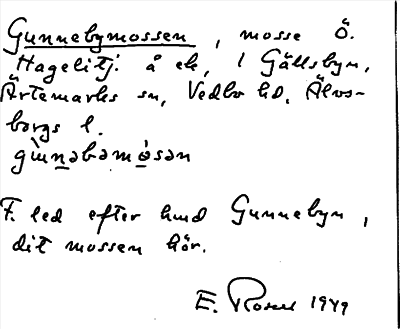 Gunnebymossen, mosse Ö.
Hagelitj. å ek, i Gällsbyn,
Ärtemarks sn, Vedbo hd, Älvs-
borgs l.
gùnəbəmósən
F. led efter hmd Gunnebyn,
dit mossen hör.
E. Rosell 1949